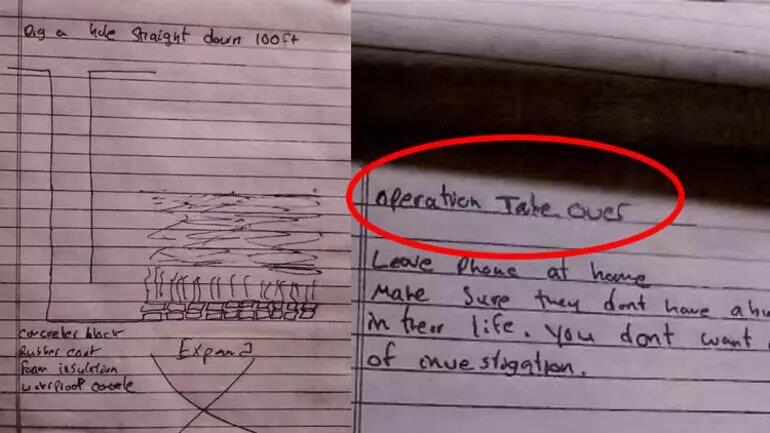 Dig a hole straight down 100ft
concreter block
Rubber coat
foam insulation
waterproof concele
Expand
operation Take over
Leave Phone at home
Make sure they dont have a
in their life. You dont want
of investogation.